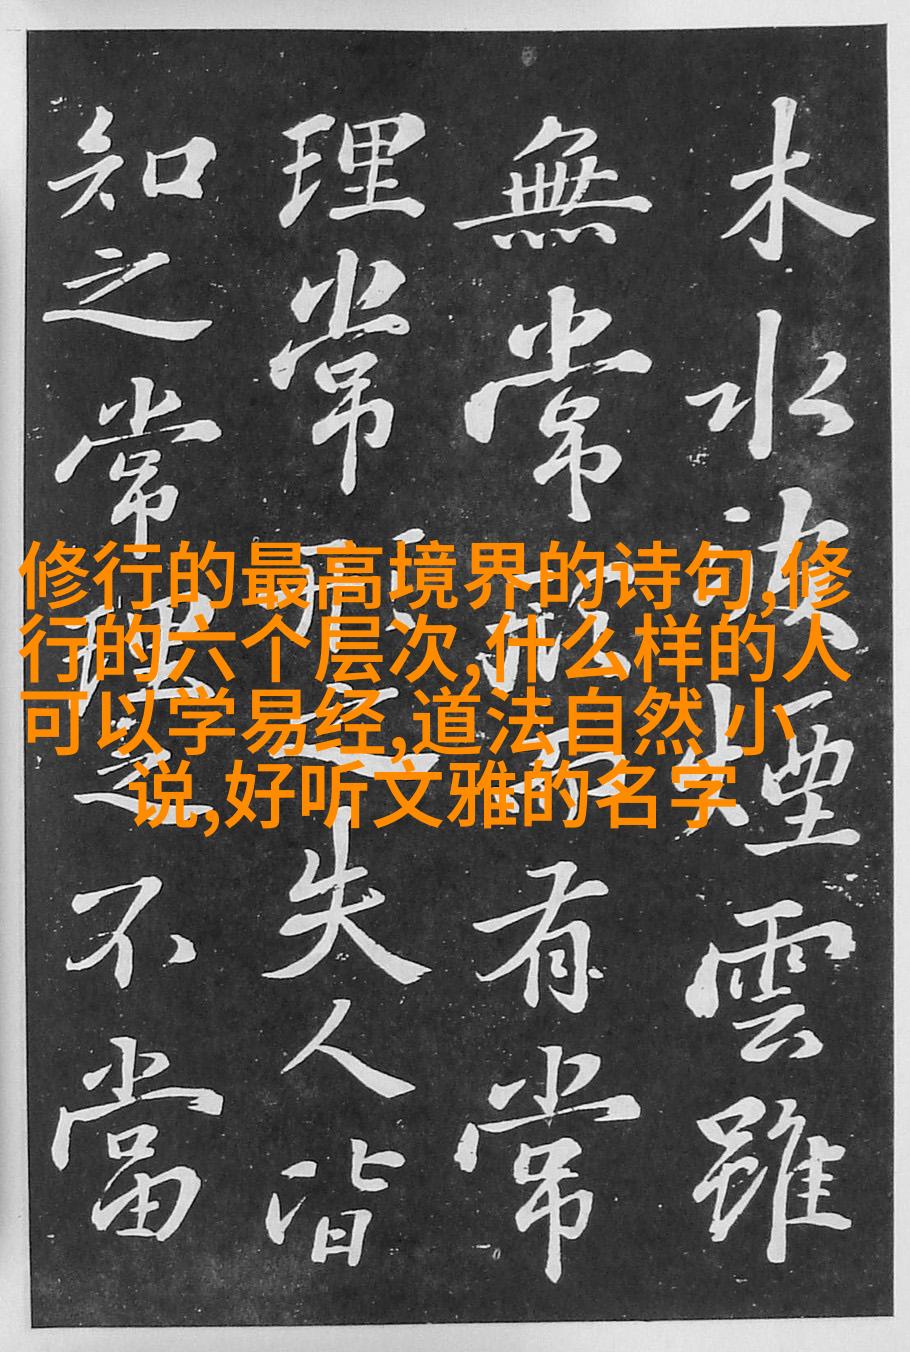 木水波煙雲雖
無常形而有常
理常形之失人皆
知之常理之不當
修行的最高境界的诗句,修
行的六个层次,什么样的人
可以学易经,道法自然 小
说,好听文雅的名字